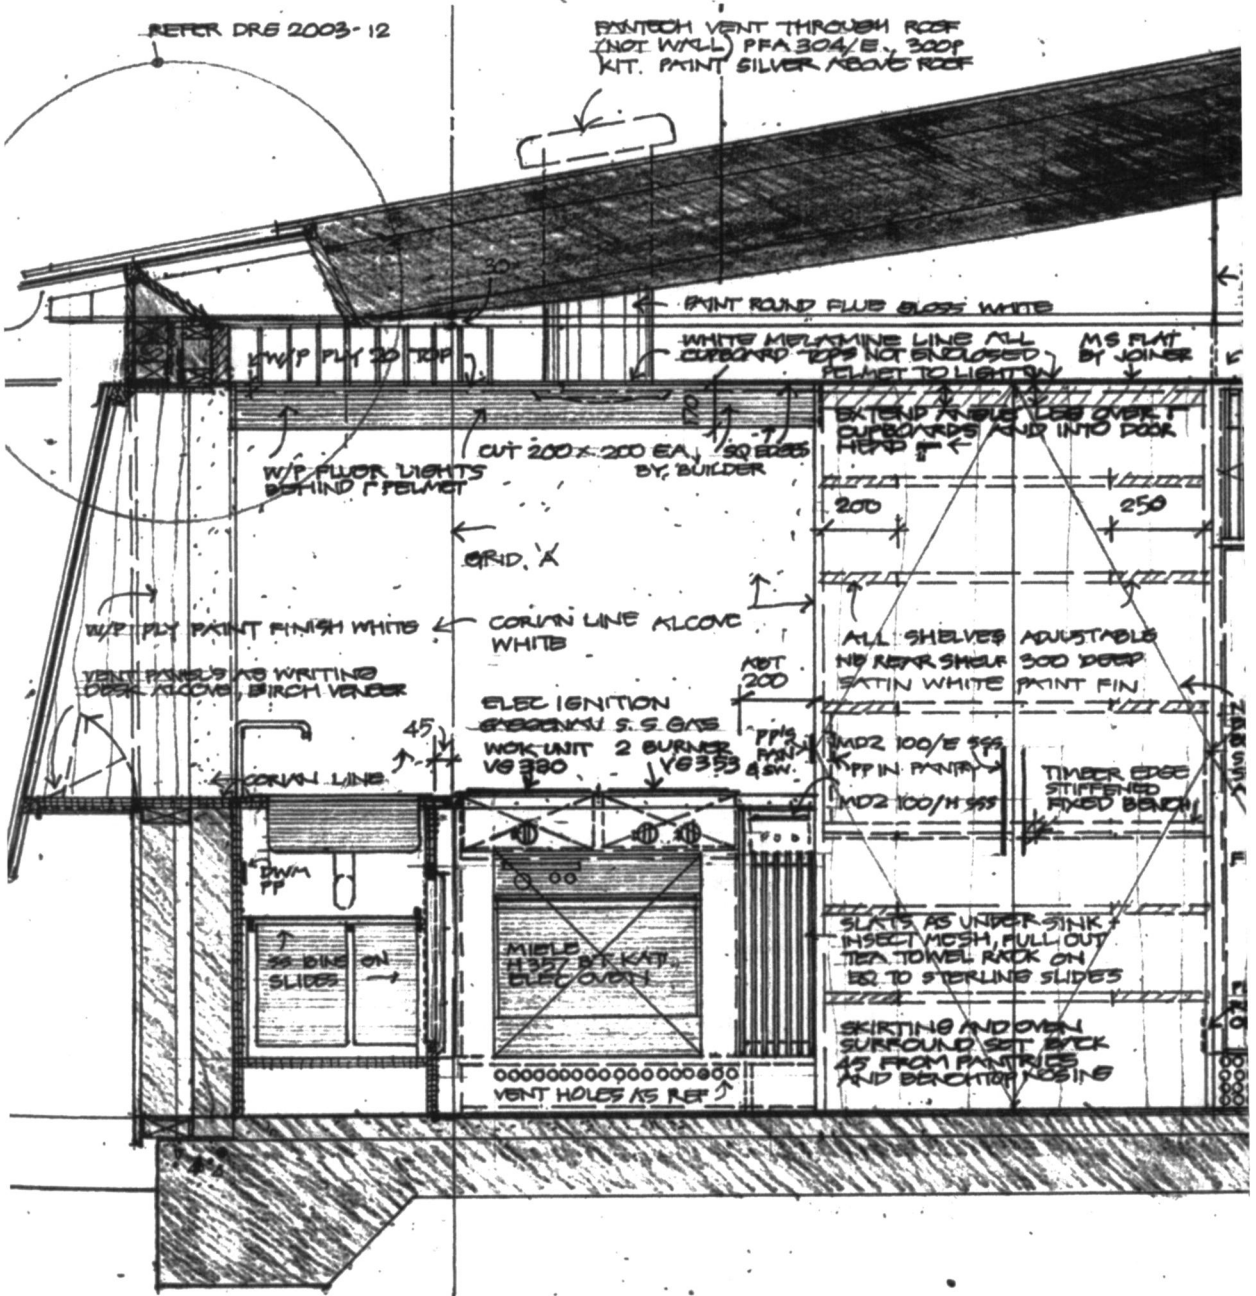 REFER DRG 2003-12
FANTECH VENT THROUGH ROOF
(NOT WALL) PFA 304/E., 300P
KIT. PAINT SILVER ABOVE ROOF
30
PAINT ROUND FLUE GLOSS WHITE
W/P PLY 20 TOP
WHITE MELAMINE LINE ALL
CUPBOARD TOPS NOT ENCLOSED
PELMET TO LIGHTS
MS FLAT
BY JOINER
170
EXTEND ANGLE LEG OVER
CUPBOARDS AND INTO DOOR
HEAD
CUT 200 x 200 EA, SQ EDGES
BY BUILDER
W/P FLUOR LIGHTS
BEHIND PELMET
200
250
GRID 'A'
W/P PLY PAINT FINISH WHITE
CORIAN LINE ALCOVE
WHITE
ALL SHELVES ADJUSTABLE
NB REAR SHELF 300 DEEP
SATIN WHITE PAINT FIN
VENT PANELS AS WRITING
DESK ALCOVE, BIRCH VENEER
ABT
200
ELEC IGNITION
GAGGENAU S.S GAS
WOK UNIT 2 BURNER
VG 330 VG 353
45
PP'S
FAN
& SW.
MD2 100/E SSS
PP IN PANTRY
MD2 100/H SSS
TIMBER EDGE
STIFFENED
FIXED BENCH
CORIAN LINE
DWM
PP
SS BINS ON
SLIDES
MIELE
ELEC OVEN
SLATS AS UNDER SINK
INSECT MESH, PULL OUT
TEA TOWEL RACK ON
EQ TO STERLING SLIDES
SKIRTING AND OVEN
SURROUND SET BACK
45 FROM PANTRIES
AND BENCHTOP NOSING
VENT HOLES AS REF